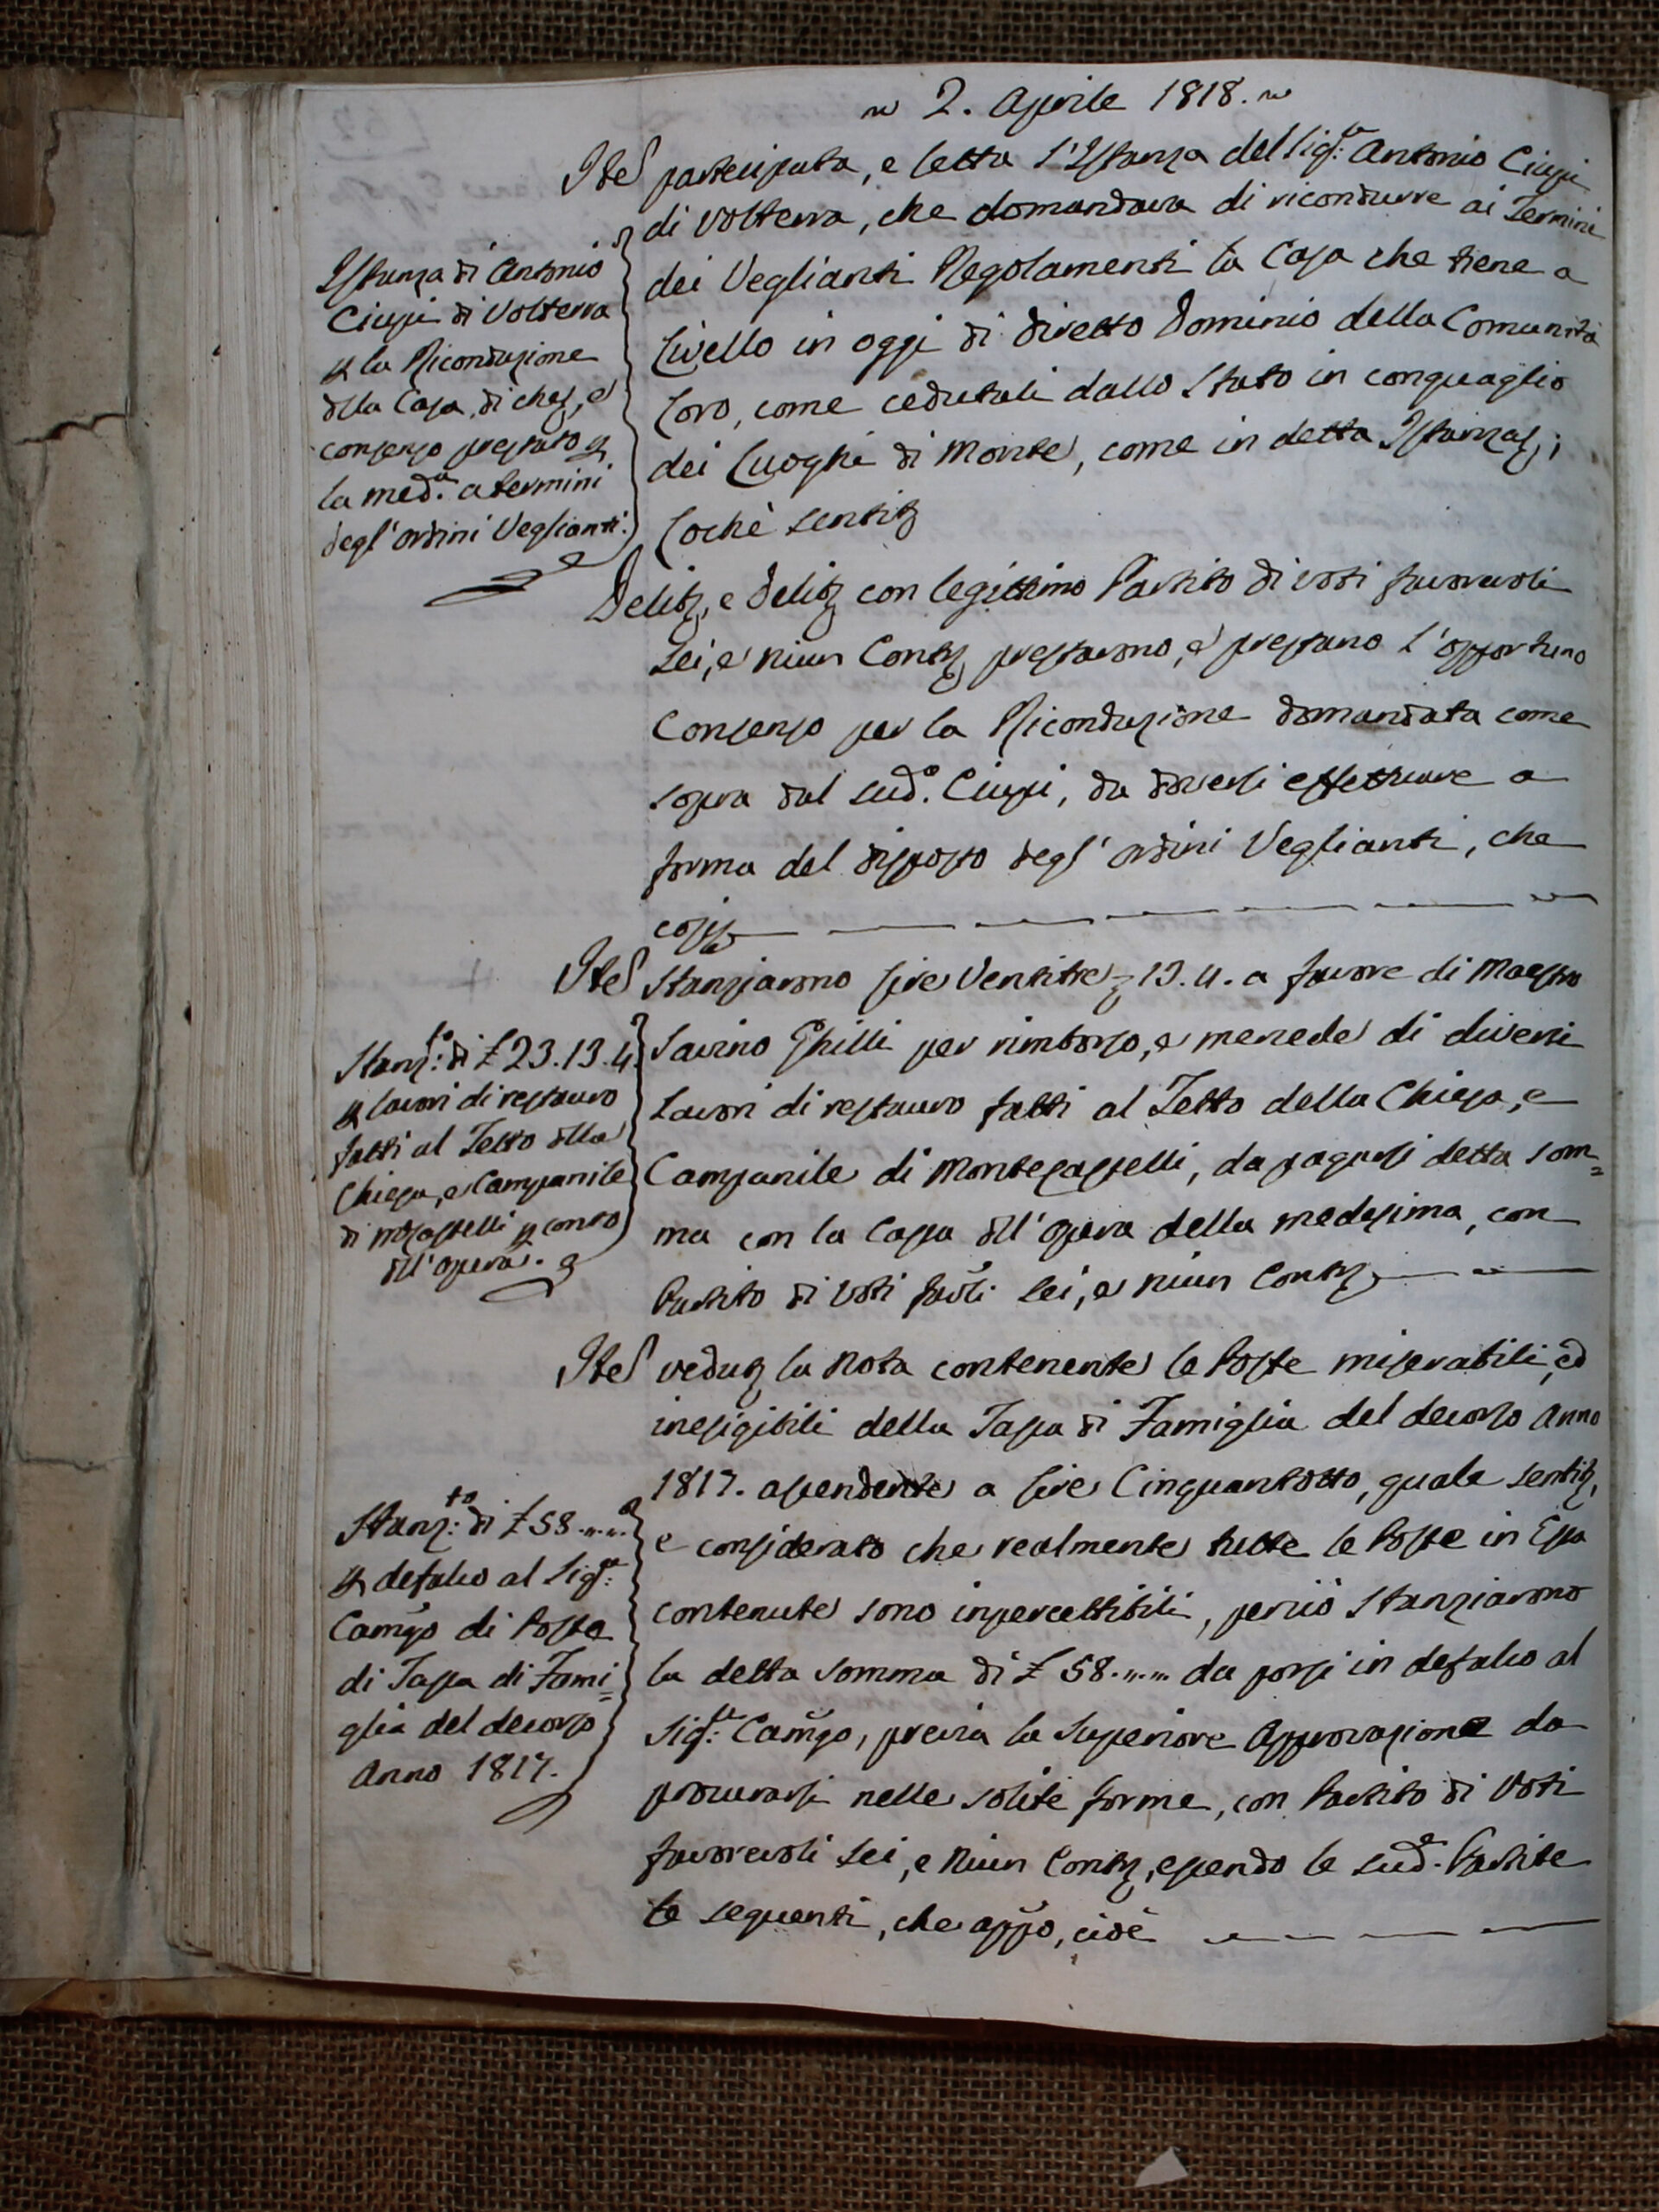 2. Aprile 1818.
Ite partecipata, e letta l'Istanza del Sig:re Antonio Ciupi
di Volterra, che domandava di ricondurre ai Termini
dei Veglianti Regolamenti la Casa che tiene a
Livello in oggi di diretto Dominio della Comunità
Loro, come cedutali dallo Stato in conguaglio
dei Luoghi di Monte, come in detta Istanza;
Lochè sentit
Delib, e Delib con legittimo Partito di voti favorevoli
Sei, e niun Cont prestarono, e prestano l'opportuno
Consenso per la Riconduzione domandata come
sopra dal sud.o Ciupi, da doversi effettuare a
forma del disposto degl'ordini Veglianti, che
così
Ite Stanziarono Lire Ventitre 13.4. a favore di Maestro
Savino Ghilli per rimborso, e mercede di diversi
Lavori di restauro fatti al Tetto della Chiesa, e
Campanile di Montecastelli, da pagarsi detta som=
ma con la Cassa dell'Opera della medesima, con
Partito di Voti favoli Sei, e niun Cont
Ite vedut la Nota contenente le Poste miserabili, ed
inesigibili della Tassa di Famiglia del decorso Anno
1817. ascendente a Lire Cinquantotto, quale sentit,
e considerato che realmente tutte le Poste in Essa
contenute sono inpercettibili, perciò Stanziarono
la detta Somma di £ 58.,,.,, da porsi in defalco al
Sig:re Camgo, previa la Superiore Approvazione da
procurarsi nelle solite forme, con Partito di Voti
favorevoli Sei, e Niun Cont, essendo le sud.e Partite
le seguenti, che appo, cioè
Istanza di Antonio
Ciupi di Volterra
p la Riconduzione
dlla Casa, di che, e
consenso prestato p
la med.a a termini
degl'ordini Veglianti.
Stanz:to di £ 23.13.4.
p lavori di restauro
fatti al Tetto dlla
Chiesa, e Campanile
di Mtecastelli p conto
dll'Opera.
Stanz:to di £ 58.,,.,,.
p defalco al Sig:re
Camgo di Poste
di Tassa di Fami=
glia del decorso
Anno 1817.